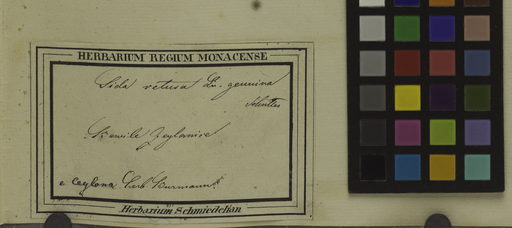 HERBARIUM REGIUM MONACENSE
Sida retusa L. genuina
Zeylanice
e Ceylona Herb. Burmann.
Herbarium Schmiedelian